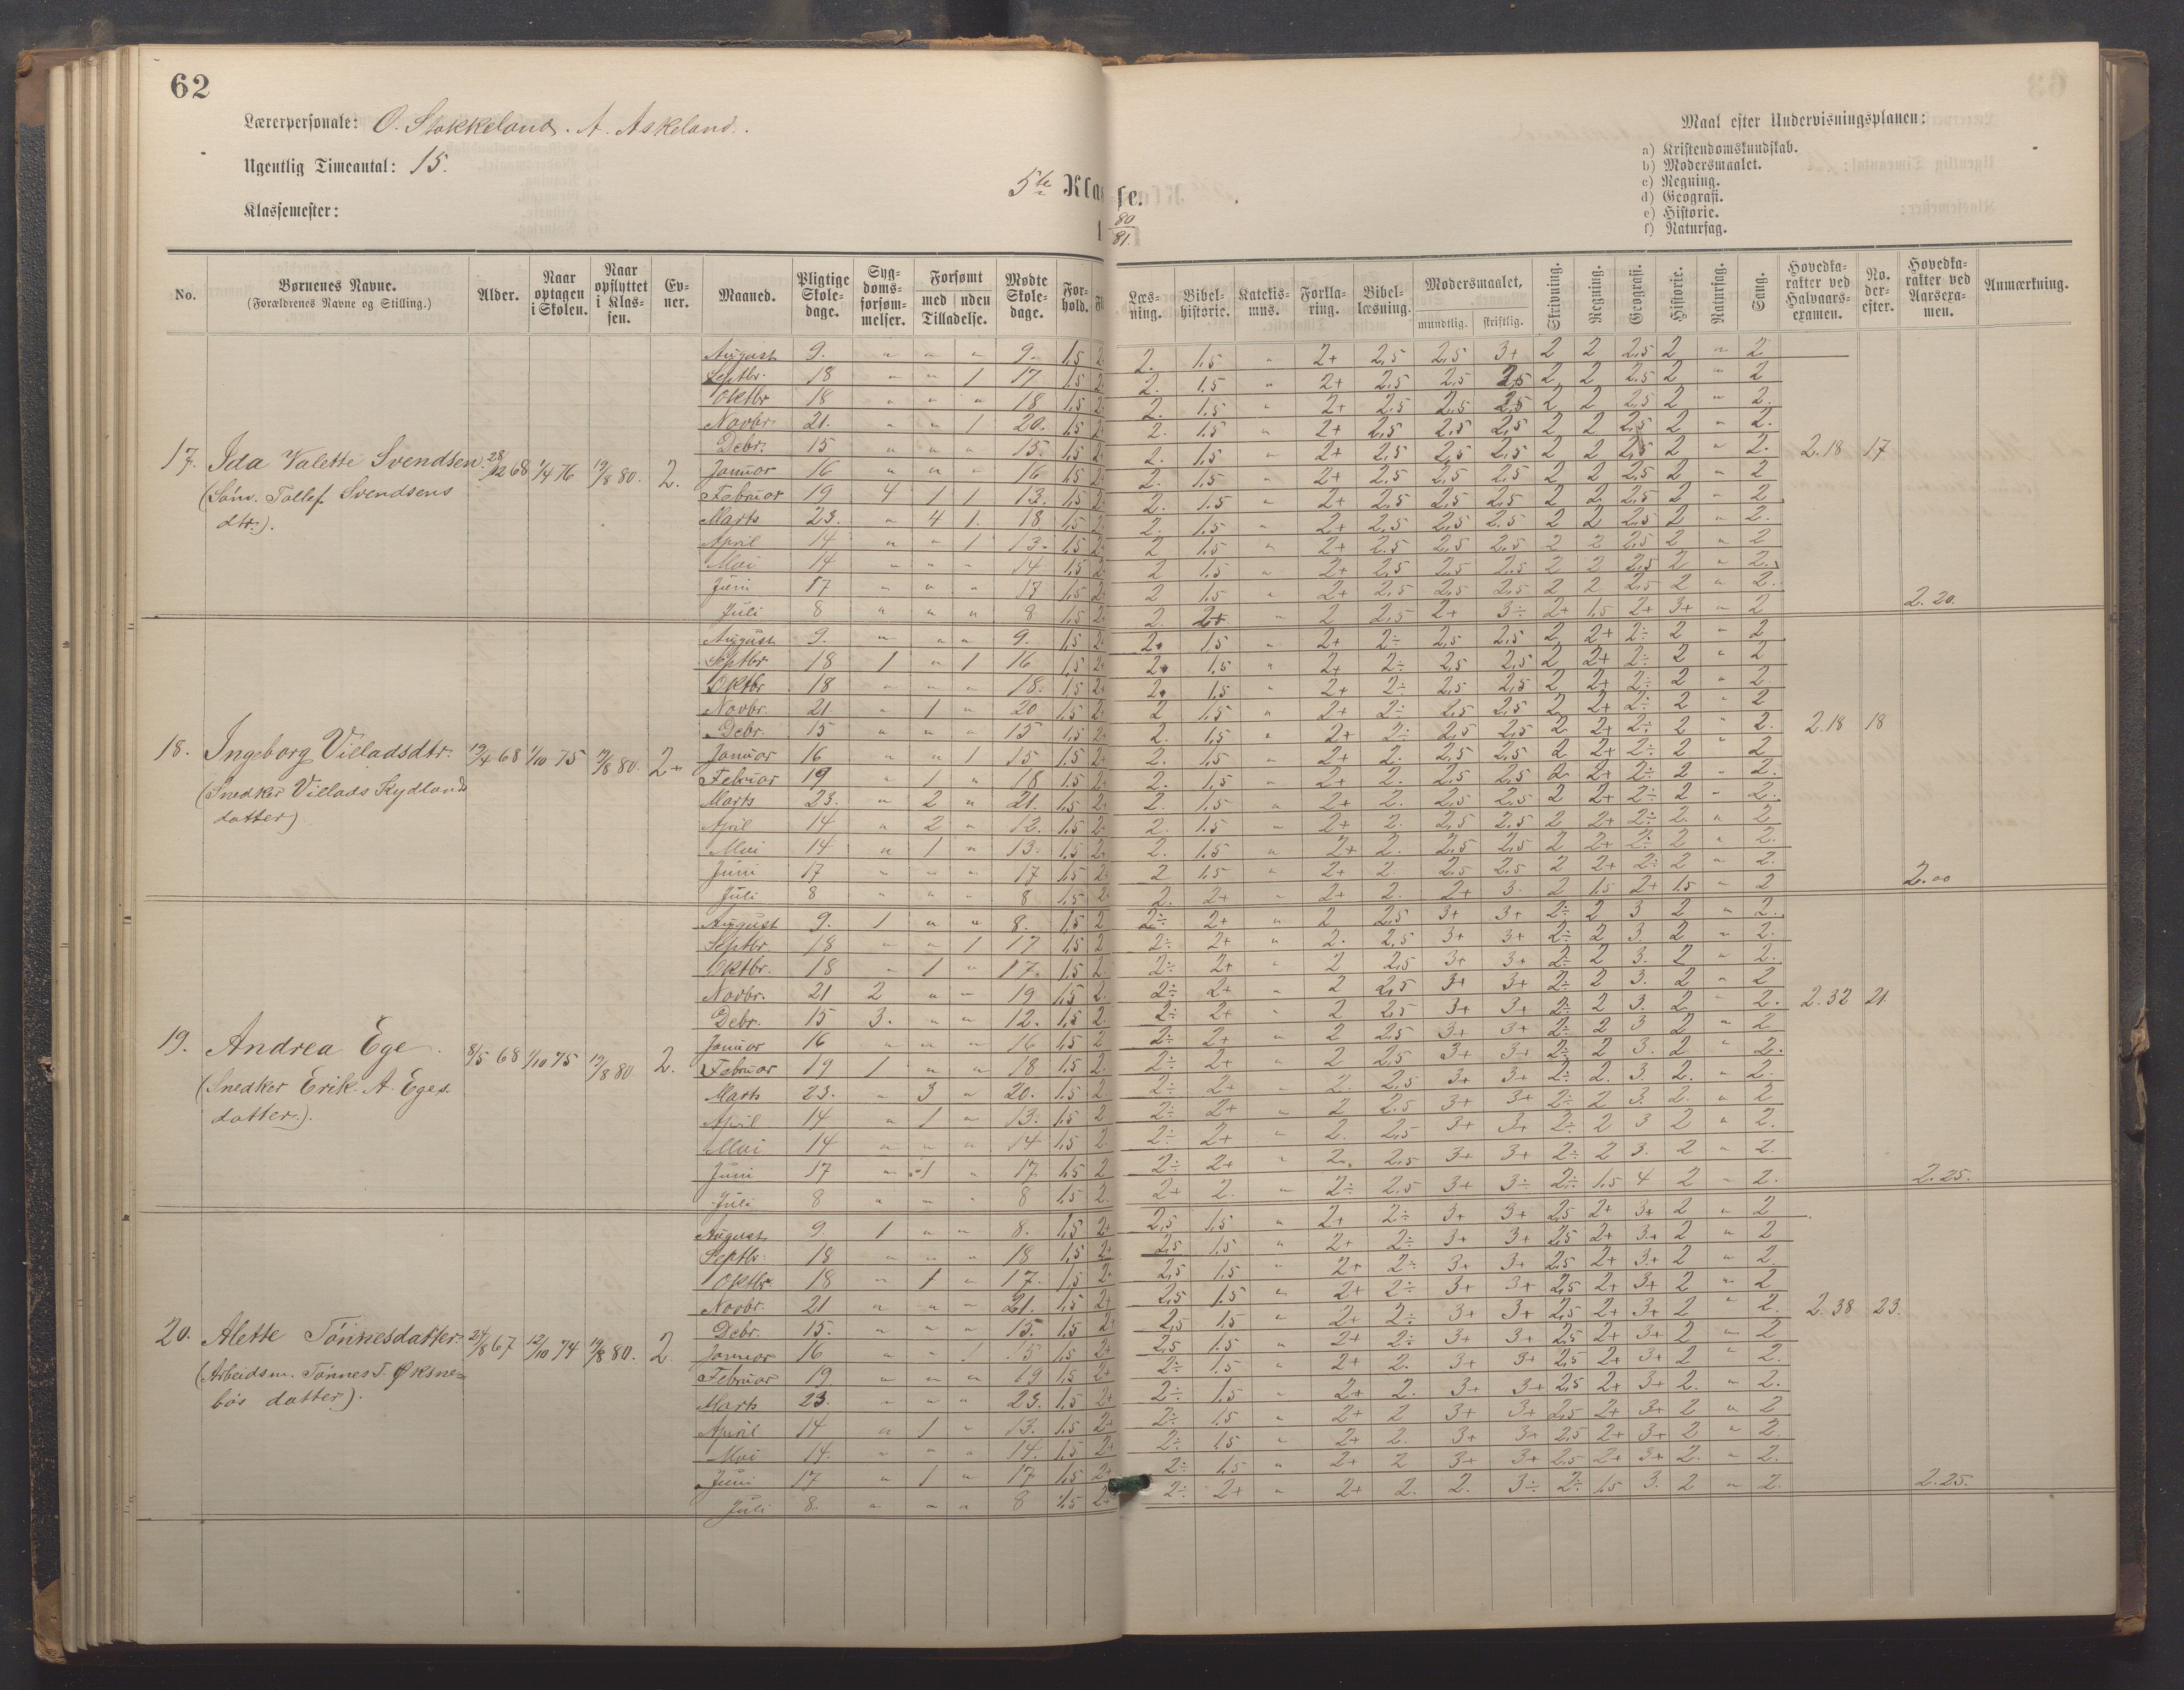 62
Lærerpersonale: O. Stokkeland. A. Askeland.
Ugentlig Timeantal: 15.
Klassemester:
5te Klasse.
80/81.
Maal efter Undervisningsplanen:
a) Kristendomskundskab.
b) Modersmaalet.
c) Regning.
d) Geografi.
e) Historie.
f) Naturfag.
No. Børnenes Navne. (Forældrenes Navne og Stilling.) Alder. Naar optagen i Skolen. Naar opflyttet i Klassen. Evner. Maaned. Pligtige Skoledage. Sygdomsforsømmelser. Forsømt med uden Tilladelse. Mødte Skoledage. Forhold. Læsning. Bibelhistorie. Katekismus. Forklaring. Bibellæsning. Modersmaalet, mundtlig. skriftlig. Skrivning. Regning. Geografi. Historie. Naturfag. Sang. Hovedkarakter ved Halvaarsexamen. No. derefter. Hovedkarakter ved Aarsexamen. Anmærkning.
17. Ida Valette Svendsen. 28/12 68 1/4 76 19/8 80. 2. 2.18 17 2.20.
(Søm. Tollef Svendsens
dtr.).
August 9. " " " 9. 1,5 2. 1,5 " 2+ 2,5 2,5 3+ 2 2 2,5 2 " 2
Septbr. 18 " " 1 17 1,5 2. 1,5 " 2+ 2,5 2,5 2,5 2 2 2,5 2 " 2
Oktbr 18 " " " 18 1,5 2. 1,5 " 2+ 2,5 2,5 2,5 2 2 2,5 2 " 2.
Novbr. 21. " " 1 20. 1,5 2. 1,5 " 2+ 2,5 2,5 2,5 2 2 2,5 2 " 2.
Debr. 15 " " " 15. 1,5 2. 1,5 " 2+ 2,5 2,5 2,5 2 2 2,5 2 " 2.
Januar 16 " " " 16 1,5 2. 1,5 " 2+ 2,5 2,5 2,5 2 2 2,5 2 " 2
Februar 19 4 1 1 13. 1,5 2. 1,5 " 2+ 2,5 2,5 2,5 2 2 2,5 2 " 2
Marts 23. " 4 1. 18 1,5 2. 1,5 " 2+ 2,5 2,5 2,5 2 2 2,5 2 " 2.
April 14 " " 1 13. 1,5 2 1,5 " 2+ 2,5 2,5 2,5 2 2 2,5 2 " 2
Mai 14 " " " 14 1,5 2 1,5 " 2+ 2,5 2,5 2,5 2 2 2,5 2 " 2.
Juni 17 " " " 17 1,5 2 1,5 " 2+ 2,5 2,5 2,5 2 2 2,5 2 " 2.
Juli 8 " " " 8 1,5 2. 2+ " 2 2,5 2+ 3÷ 2+ 1,5 2+ 3+ " 2
18. Ingeborg Villadsdtr. 19/4 68 1/10 75 19/8 80. 2+ 2.18 18 2.00
(Snedker Villads Kydlands
datter)
August 9. " " " 9. 1,5 2. 1,5 " 2+ 2÷ 2,5 2,5 2 2+ 2÷ 2 " 2
Septbr 18 1 " 1 16 1,5 2. 1,5 " 2+ 2÷ 2,5 2,5 2 2+ 2÷ 2 " 2
Oktbr 18 " " " 18. 1,5 2. 1,5 " 2+ 2÷ 2,5 2,5 2 2+ 2÷ 2 " 2
Novbr. 21 " 1 " 20 1,5 2 1,5 " 2+ 2÷ 2,5 2,5 2 2+ 2÷ 2 " 2
Debr. 15 " " " 15 1,5 2. 1,5 " 2+ 2÷ 2,5 2,5 2 2+ 2÷ 2 " 2.
Januar 16 " " 1 15 1,5 2. 1,5 " 2+ 2. 2,5 2,5 2 2+ 2÷ 2 " 2
Februar 19 " 1 " 18 1,5 2. 1,5 " 2+ 2. 2,5 2,5 2 2+ 2÷ 2 " 2.
Marts 23. " 2 " 21. 1,5 2. 1,5 " 2+ 2. 2,5 2,5 2 2+ 2÷ 2 " 2.
April 14 " 2 " 12. 1,5 2. 1,5 " 2+ 2. 2,5 2,5 2 2+ 2÷ 2. " 2
Mai 14 " 1 " 13. 1,5 2. 1,5 " 2+ 2. 2,5 2,5 2 2+ 2÷ 2 " 2.
Juni 17 " " " 17 1,5 2 1,5 " 2+ 2. 2,5 2,5 2 2+ 2÷ 2 " 2.
Juli 8 " " " 8 1,5 2. 2+ " 2+ 2. 2+ 3. 2 1,5 2+ 1,5 " 2
19. Andrea Ege. 8/5 68 1/10 75 19/8 80. 2. 2.32 21. 2.25.
(Snedker Erik A. Eges
datter.).
August 9. 1 " " 8. 1,5 2 2÷ 2+ " 2 2,5 3+ 3+ 2÷ 2 3 2 " 2.
Septbr. 18 " " 1 17 1,5 2 2÷ 2+ " 2. 2,5 3+ 3+ 2÷ 2 3. 2 " 2.
Oktbr. 18 " 1 " 17. 1,5 2. 2÷ 2+ " 2 2,5 3+ 3+ 2÷ 2 3. 2 " 2.
Novbr. 21 2 " " 19 1,5 2. 2÷ 2+ " 2 2,5 3+ 3+ 2÷ 2 3. 2 " 2
Debr. 15 3. " " 12. 1,5 2. 2÷ 2+ " 2 2,5 3+ 3+ 2÷ 2 3. 2 " 2.
Januar 16 " " " 16 1,5 2 2÷ 2+ " 2 2,5 3+ 3+ 2÷ 2 3 2 " 2
Februar 19 1 " " 18 1,5 2. 2÷ 2+ " 2 2,5 3+ 3+ 2÷ 2 3. 2 " 2.
Marts 23. " 3 " 20. 1,5 2 2÷ 2+ " 2. 2,5 3+ 3+ 2÷ 2. 3. 2. " 2.
April 14 " 1 " 13. 1,5 2 2÷ 2+ " 2 2,5 3+ 3+ 2÷ 2 3. 2. " 2
Mai 14 " " " 14 1,5 2. 2÷ 2+ " 2. 2,5 3+ 3+ 2÷ 2 3 2 " 2.
Juni 17 " 1 " 17. 1,5 2 2÷ 2+ " 2. 2,5 3+ 3+ 2÷ 2 3. 2 " 2.
Juli 8 " " " 8 1,5 2. 2+ 2. " 2÷ 2,5 3+ 3÷ 2÷ 1,5 4 2 " 2.
20. Alette Tönnesdatter. 24/8 67 12/10 74 19/8 80. 2. 2.38 23. 2.25.
(Arbeidsm. Tönnes T. Øksne=
bös datter).
August 9. 1 " " 8. 1,5 2+ 2,5 1,5 " 2+ 2÷ 3+ 3+ 2,5 2+ 3+ 2 " 2
Septbr. 18 " " " 18 1,5 2+ 2,5 1,5 " 2+ 2÷ 3+ 3+ 2,5 2+ 3+ 2 " 2
Oktbr. 18 " 1 " 17. 1,5 2+ 2,5 1,5 " 2+ 2÷ 3+ 3+ 2,5 2+ 3+ 2 " 2.
Novbr. 21 " " " 21. 1,5 2+ 2,5 1,5 " 2+ 2÷ 3+ 3+ 2,5 2+ 3+ 2 " 2
Debr. 15. " " " 15. 1,5 2+ 2,5 1,5 " 2+ 2÷ 3+ 3+ 2,5 2+ 3+ 2 " 2.
Januar 16 " " 1 15 1,5 2+ 2,5 1,5 " 2+ 2÷ 3+ 3+ 2,5 2+ 3+ 2 " 2
Februar 19. " " " 19 1,5 2+ 2÷ 1,5 " 2+ 2. 3+ 3+ 2,5 2+ 3+ 2 " 2.
Marts 23. " " " 23. 1,5 2+ 2÷ 1,5 " 2+ 2. 3+ 3+ 2,5 2+ 3+ 2. " 2.
April 14 " 1 " 13. 1,5 2+ 2÷ 1,5 " 2+ 2 3+ 3+ 2,5 2+ 3+ 2 " 2
Mai 14. " " " 14. 1,5 2+ 2÷ 1,5 " 2+ 2. 3+ 3+ 2,5 2+ 3+ 2 " 2.
Juni 17 " 1 " 17 1,5 2+ 2÷ 1,5 " 2+ 2 3+ 3+ 2,5 2+ 3+ 2. " 2.
Juli 8. " " " 8 1,5 2+ 2÷ 2+ " 2+ 2. 2. 3÷ 2÷ 1,5 3. 2 " 2.